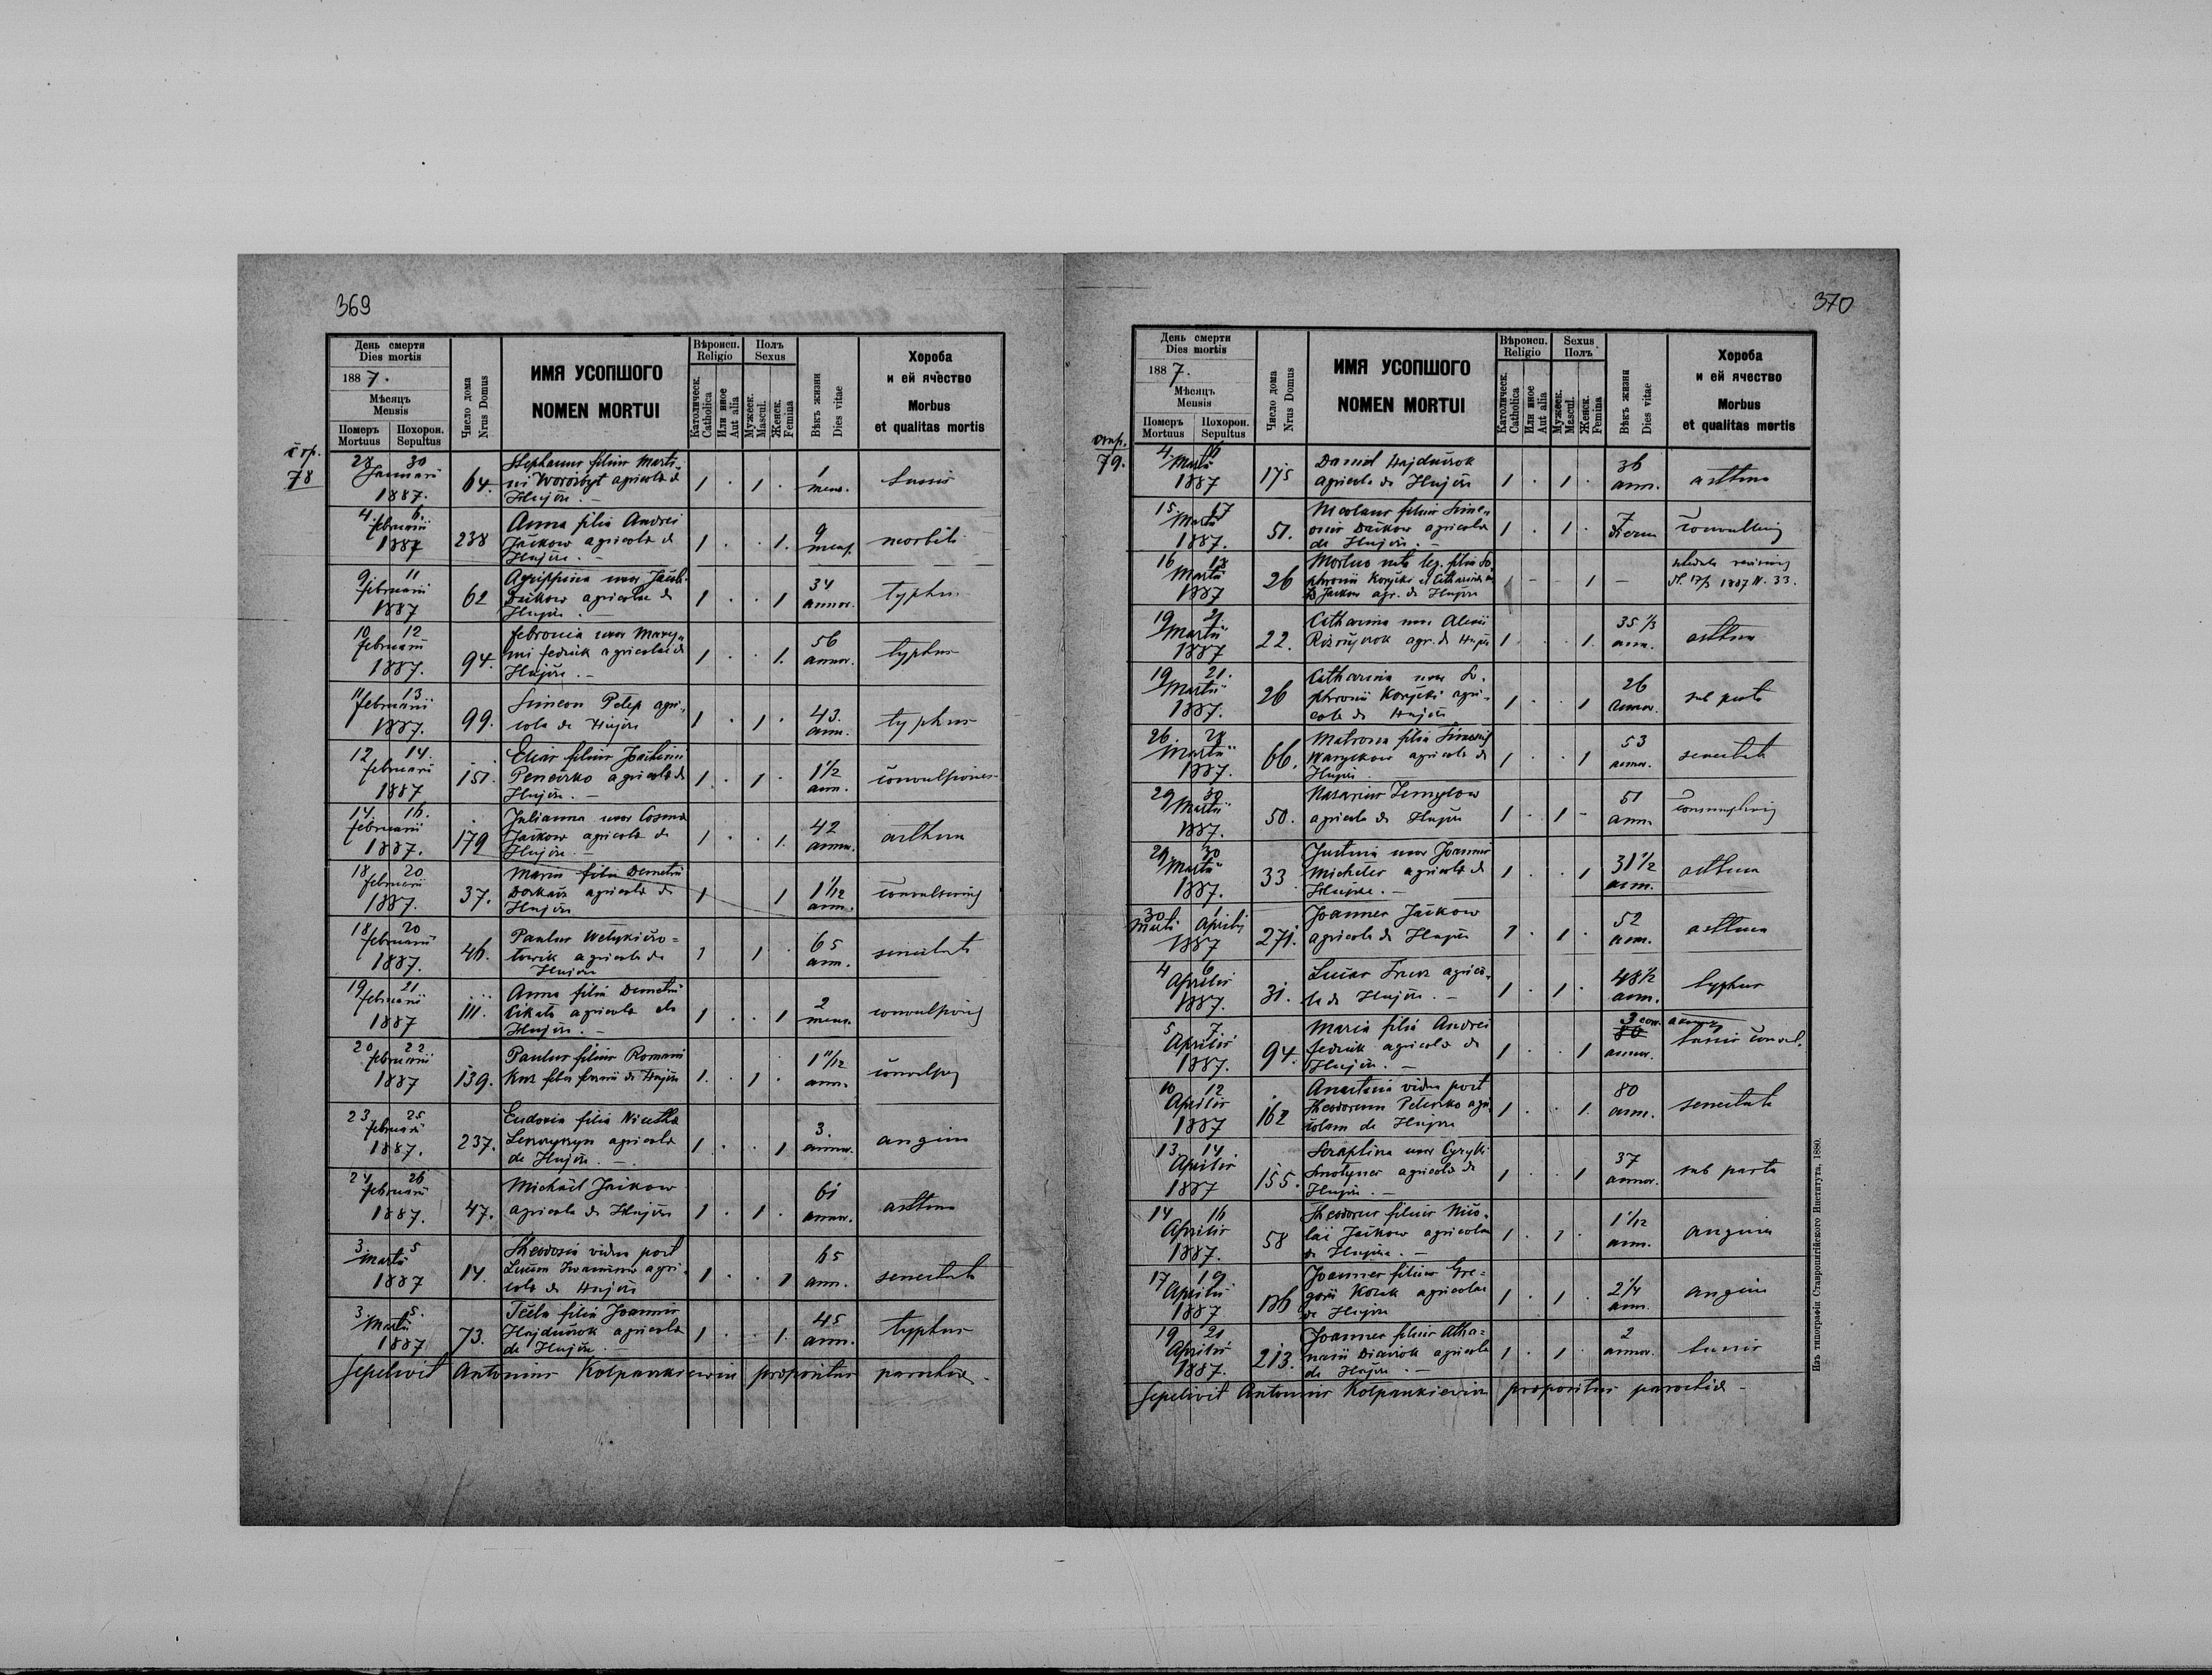 369
День смерти
Dies mortis
1887.
Мѣсяцъ
Mensis
Померъ
Mortuus
Похорон.
Sepultus
Число дома
Nrus Domus
ИМЯ УСОПШОГО
NOMEN MORTUI
Вѣроисп.
Religio
Католическ.
Catholica
Или иное
Aut alia
Полъ
Sexus
Мужеск.
Mascul.
Женск.
Femina
Вѣкъ жизни
Dies vitae
Хороба
и ей ячество
Morbus
et qualitas mortis
78
28 30
Januarii
1887.
64.
Stephanus filius Marti-
ni Worobyt agricola d
Hujče. –
1 . 1 .
1
mens.
tussis
4. 6.
februarii
1887
238
Anna filia Andrei
Jaćkow agricola d
Hujče. –
1 . . 1.
9
mens.
morbili
9 11
februarii
1887
62
Agrippina uxor Jacobi
agricola d
Hujče. –
1 . . 1
34
annor.
typhus
10 12
februarii
1887.
94.
febronia uxor
fedruk agricola d
Hujče. –
1 . . 1.
56
annor.
typhus
11 13
februarii
1887.
99.
Simeon Petep agri-
cola de Hujče
1 . 1 .
43.
ann.
typhus
12 14.
februarii
1887
151.
Elias filius Joachimi
agricola d
Hujče. –
1 . 1 .
1 1/2
ann.
convulsiones
14. 16.
februarii
1887.
179
Julianna uxor Cosma
Jaćkow agricola de
Hujče. –
1 . . 1.
42
annor.
asthma
18 20
februarii
1887.
37.
Maria filia Demetrii
agricola de
Hujče
1 1
1 1/12
ann.
18 20
februarii
1887.
46.
Paulus
agricola de
Hujče
1 1 .
65
ann.
senectute
19 21
februarii
1887
111.
Anna filia Demetrii
agricola de
Hujče. –
1 . . 1
2
mens.
20 22
februarii
1887
139.
Paulus filius Romani
de Hujče
1. . 1 .
1 11/12
ann.
23 25
februarii
1887.
237.
Eudoxia filia Nicetha
agricola
de Hujče. –
1 . . 1
3.
annor.
angina
24 26
februarii
1887.
47.
Michael Jaćkow
agricola de Hujče
1 . 1 .
61
annor.
asthma
3. 5
Martii
1887
14.
Theodosia vidua post
agri-
cola de Hujče
1 . . 1
65
ann.
senectute
3. 5.
Martii
1887
73.
Tecla filia Joannis
Hajduczok agricola
de Hujče. –
1 . . 1.
45
ann.
typhus
Sepelivit Antonius Kolpankiewicz propositus parochiæ.
370
День смерти
Dies mortis
1887.
Мѣсяцъ
Mensis
Померъ
Mortuus
Похорон.
Sepultus
Число дома
Nrus Domus
ИМЯ УСОПШОГО
NOMEN MORTUI
Вѣроисп.
Religio
Католическ.
Catholica
Или иное
Aut alia
Sexus
Полъ
Мужеск.
Mascul.
Женск.
Femina
Вѣкъ жизни
Dies vitae
Хороба
и ей ячество
Morbus
et qualitas mortis
79.
4. 6
Martii
1887
175
Daniel Hajduczok
agricola de Hujče
1 . 1 .
36
ann.
asthma
15. 17
Martii
1887.
51.
Nicolaus filius Sime-
onis agricola
de Hujče. –
1 . 1 .
7
dierum
16 18
Martii
1887
26
Mortuo nata leg. filia So-
phronii Koryćki et Catharina
Jaćkow agr. de Hujče
1 – – 1
–
1887 N. 33.
19 21.
Martii
1887
22.
Catharina uxor Alexii
agr. de Hujče
1 . . 1.
35 1/3
ann.
asthma
19 21.
Martii
1887.
26
Catharina uxor So-
phronii Koryćki agri-
cola de Hujče
1 . . 1
26
annor.
sub partu
26. 28
Martii
1887.
66.
Matrona filia Simeonis
agricola de
Hujče
1 . . 1
53
annor.
senectute
29 30
Martii
1887.
50.
Nazarius
agricola de Hujče
1 . 1 .
51
ann.
29. 30
Martii
1887.
33
Justina uxor Joannis
agricola de
Hujče. –
1 . . 1
31 1/2
ann.
asthma
30 1
Martii Aprilis
1887
271.
Joannes Jaćkow
agricola de Hujče
1 . 1 .
52
ann.
asthma
4 6
Aprilis
1887.
31.
Lucas agrico-
la de Hujče. –
1 . 1 .
48 1/2
ann.
typhus
5 7.
Aprilis
1887.
94.
Maria filia Andrei
fedruk agricola de
Hujče. –
1 . . 1
3
80
annor.
10 12
Aprilis
1887
162
Anastasia vidua post
Theodorum agri-
colam de Hujče
1 . . 1.
80
ann.
senectute
13 14.
Aprilis
1887
155.
Seraphina uxor Cyrylli
agricola de
Hujče. –
1 . . 1
37
annor.
sub partu
14 16
Aprilis
1887.
58
Theodorus filius Nico-
lai Jaćkow agricola
de Hujče. –
1 . 1 .
1 1/12
ann.
angina
17 19
Aprilis
1887
Joannes filius Gre-
gorii Kozak agricola
de Hujče
1 . 1 .
2 1/4
ann.
angina
19 21
Aprilis
1887.
213.
Joannes filius Atha-
nasii agricola
de Hujče. –
1 . 1 .
2
annor.
tussis
Sepelivit Antonius Kolpankiewicz propositus parochiæ –
Изъ типографіи Ставропигійского Института, 1880.